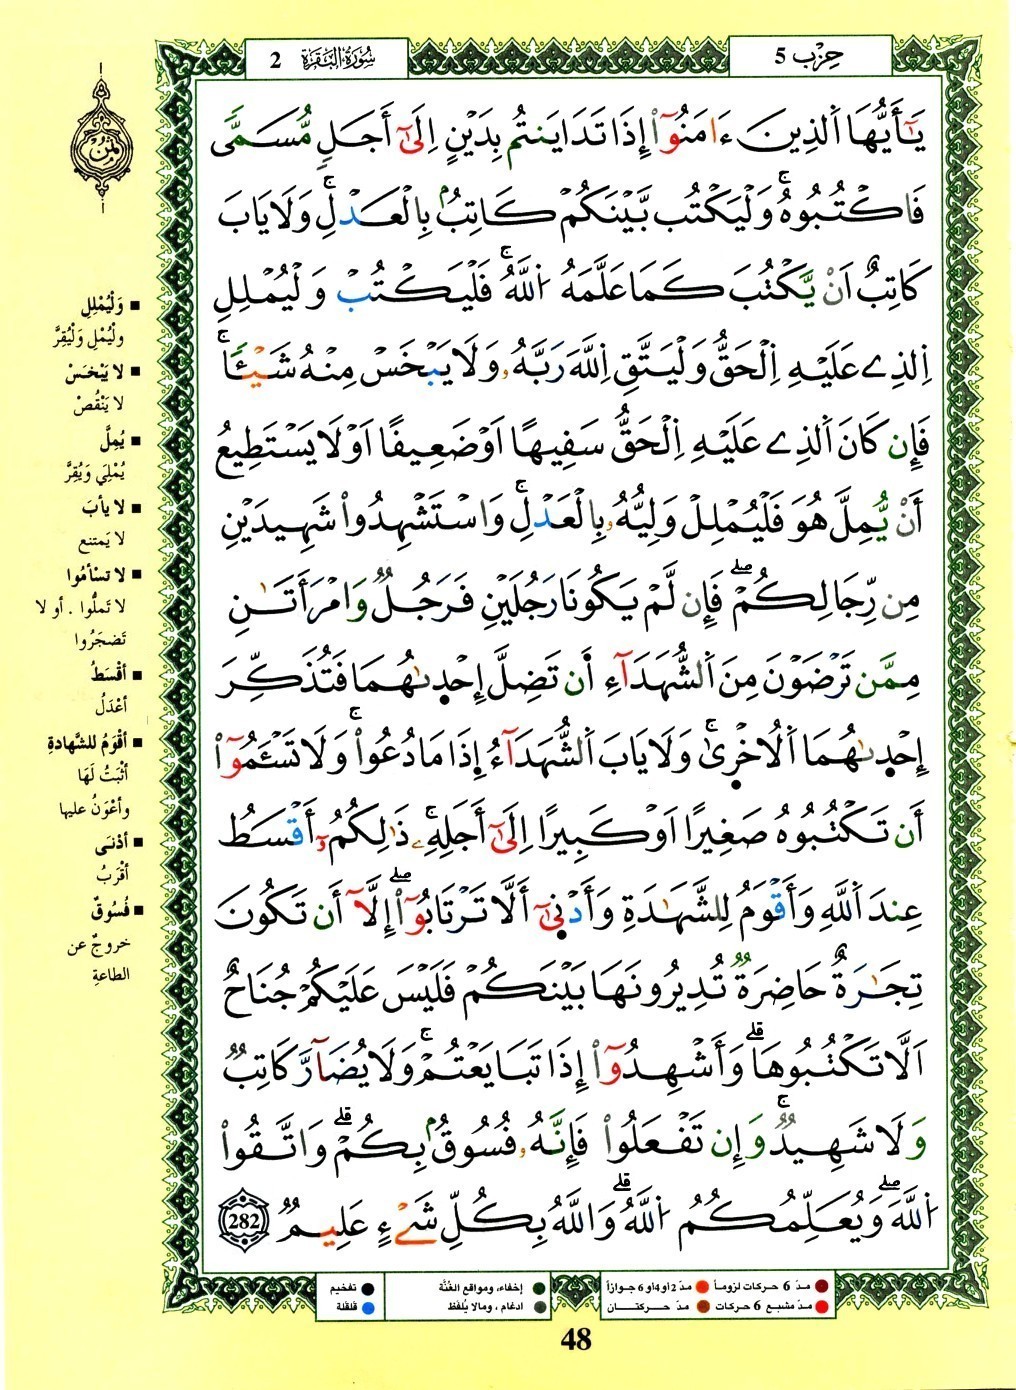 حِزْب 5
سُورَةُ البَقَرَة 2
يَٰٓأَيُّهَا اَ۬لذِينَ ءَامَنُوٓاْ إِذَا تَدَايَنتُم بِدَيْنٍ اِلَىٰٓ أَجَلٖ مُّسَمّٗى
فَاكْتُبُوهُۚ وَلْيَكْتُب بَّيْنَكُمْ كَاتِبُۢ بِالْعَدْلِۚ وَلَا يَابَ
كَاتِبٌ اَنْ يَّكْتُبَ كَمَا عَلَّمَهُ اُ۬للَّهُۚ فَلْيَكْتُبْ وَلْيُمْلِلِ
اِ۬لذِے عَلَيْهِ اِ۬لْحَقُّ وَلْيَتَّقِ اِ۬للَّهَ رَبَّهُۥ وَلَا يَبْخَسْ مِنْهُ شَيْـٔٗاۚ
فَإِن كَانَ اَ۬لذِے عَلَيْهِ اِ۬لْحَقُّ سَفِيهًا اَوْ ضَعِيفًا اَوْ لَا يَسْتَطِيعُ
أَنْ يُّمِلَّ هُوَ فَلْيُمْلِلْ وَلِيُّهُۥ بِالْعَدْلِۚ وَاسْتَشْهِدُواْ شَهِيدَيْنِ
مِن رِّجَالِكُمْۖ فَإِن لَّمْ يَكُونَا رَجُلَيْنِ فَرَجُلٞ وَامْرَأَتَٰنِ
مِمَّن تَرْضَوْنَ مِنَ اَ۬لشُّهَدَآءِ أَن تَضِلَّ إِحْد۪ىٰهُمَا فَتُذَكِّرَ
إِحْد۪ىٰهُمَا اَ۬لُاخْر۪ىٰۚ وَلَا يَابَ اَ۬لشُّهَدَآءُ اِ۪ذَا مَا دُعُواْۚ وَلَا تَسْـَٔمُوٓاْ
أَن تَكْتُبُوهُ صَغِيرًا اَوْ كَبِيرًا اِلَىٰٓ أَجَلِهِۦۚ ذَٰلِكُمُۥٓ أَقْسَطُ
عِندَ اَ۬للَّهِ وَأَقْوَمُ لِلشَّهَٰدَةِ وَأَدْن۪ىٰٓ أَلَّا تَرْتَابُوٓاْۖ إِلَّآ أَن تَكُونَ
تِجَٰرَةٌ حَاضِرَةٞ تُدِيرُونَهَا بَيْنَكُمْ فَلَيْسَ عَلَيْكُمْ جُنَاحٌ
اَلَّا تَكْتُبُوهَاۗ وَأَشْهِدُوٓاْ إِذَا تَبَايَعْتُمْۚ وَلَا يُضَآرَّ كَاتِبٞ
وَلَا شَهِيدٞۚ وَإِن تَفْعَلُواْ فَإِنَّهُۥ فُسُوقُۢ بِكُمْۗ وَاتَّقُواْ
اُ۬للَّهَۖ وَيُعَلِّمُكُمُ اُ۬للَّهُۗ وَاللَّهُ بِكُلِّ شَےْءٍ عَلِيمٞ 282
■ وَلْيُمْلِلِ
ولْيُمْلِ وَلْيُقِرَّ
■ لا يَبْخَسْ
لا يَنْقُصْ
■ يُمِلَّ
يُمْلِيَ وَيُقِرَّ
■ لا يأبَ
لا يَمتنع
■ لا تسْأمُوا
لا تَملُّوا . أو لا
تَضجَرُوا
■ أقْسَطُ
أعْدَلُ
■ أقْوَمُ للشَّهادةِ
أثْبَتُ لَهَا
وأعْوَنُ عليها
■ أدْنَى
أقْرَبُ
■ فُسُوقٌ
خروجٌ عن
الطاعةِ
مدّ 6 حركات لزوماً مدّ 2 أو 4 أو 6 جوازاً إخفاء، ومواقع الغُنَّة تفخيم
مدّ مشبع 6 حركات مدّ حركتان ادغام ، ومالا يُلفَظ قلقلة
48